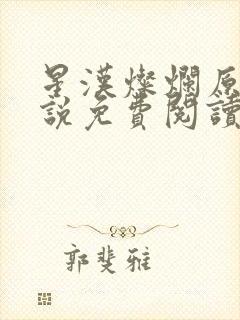 星漢燦爛原
說免費閱讀
郭斐雅